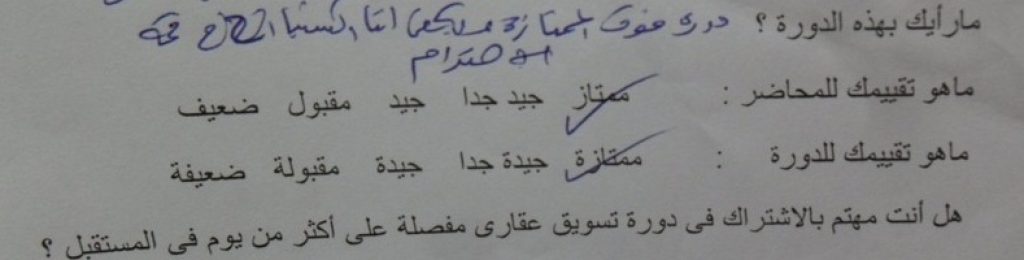 مارأيك بهذه الدورة ؟ دورة فوق الممتازة ويكفي اننا اكتسبنا
الاحترام
ماهو تقييمك للمحاضر : ممتاز جيد جدا جيد مقبول ضعيف
ماهو تقييمك للدورة : ممتازة جيدة جدا جيدة مقبولة ضعيفة
هل أنت مهتم بالاشتراك فى دورة تسويق عقارى مفصلة على أكثر من يوم فى المستقبل ؟